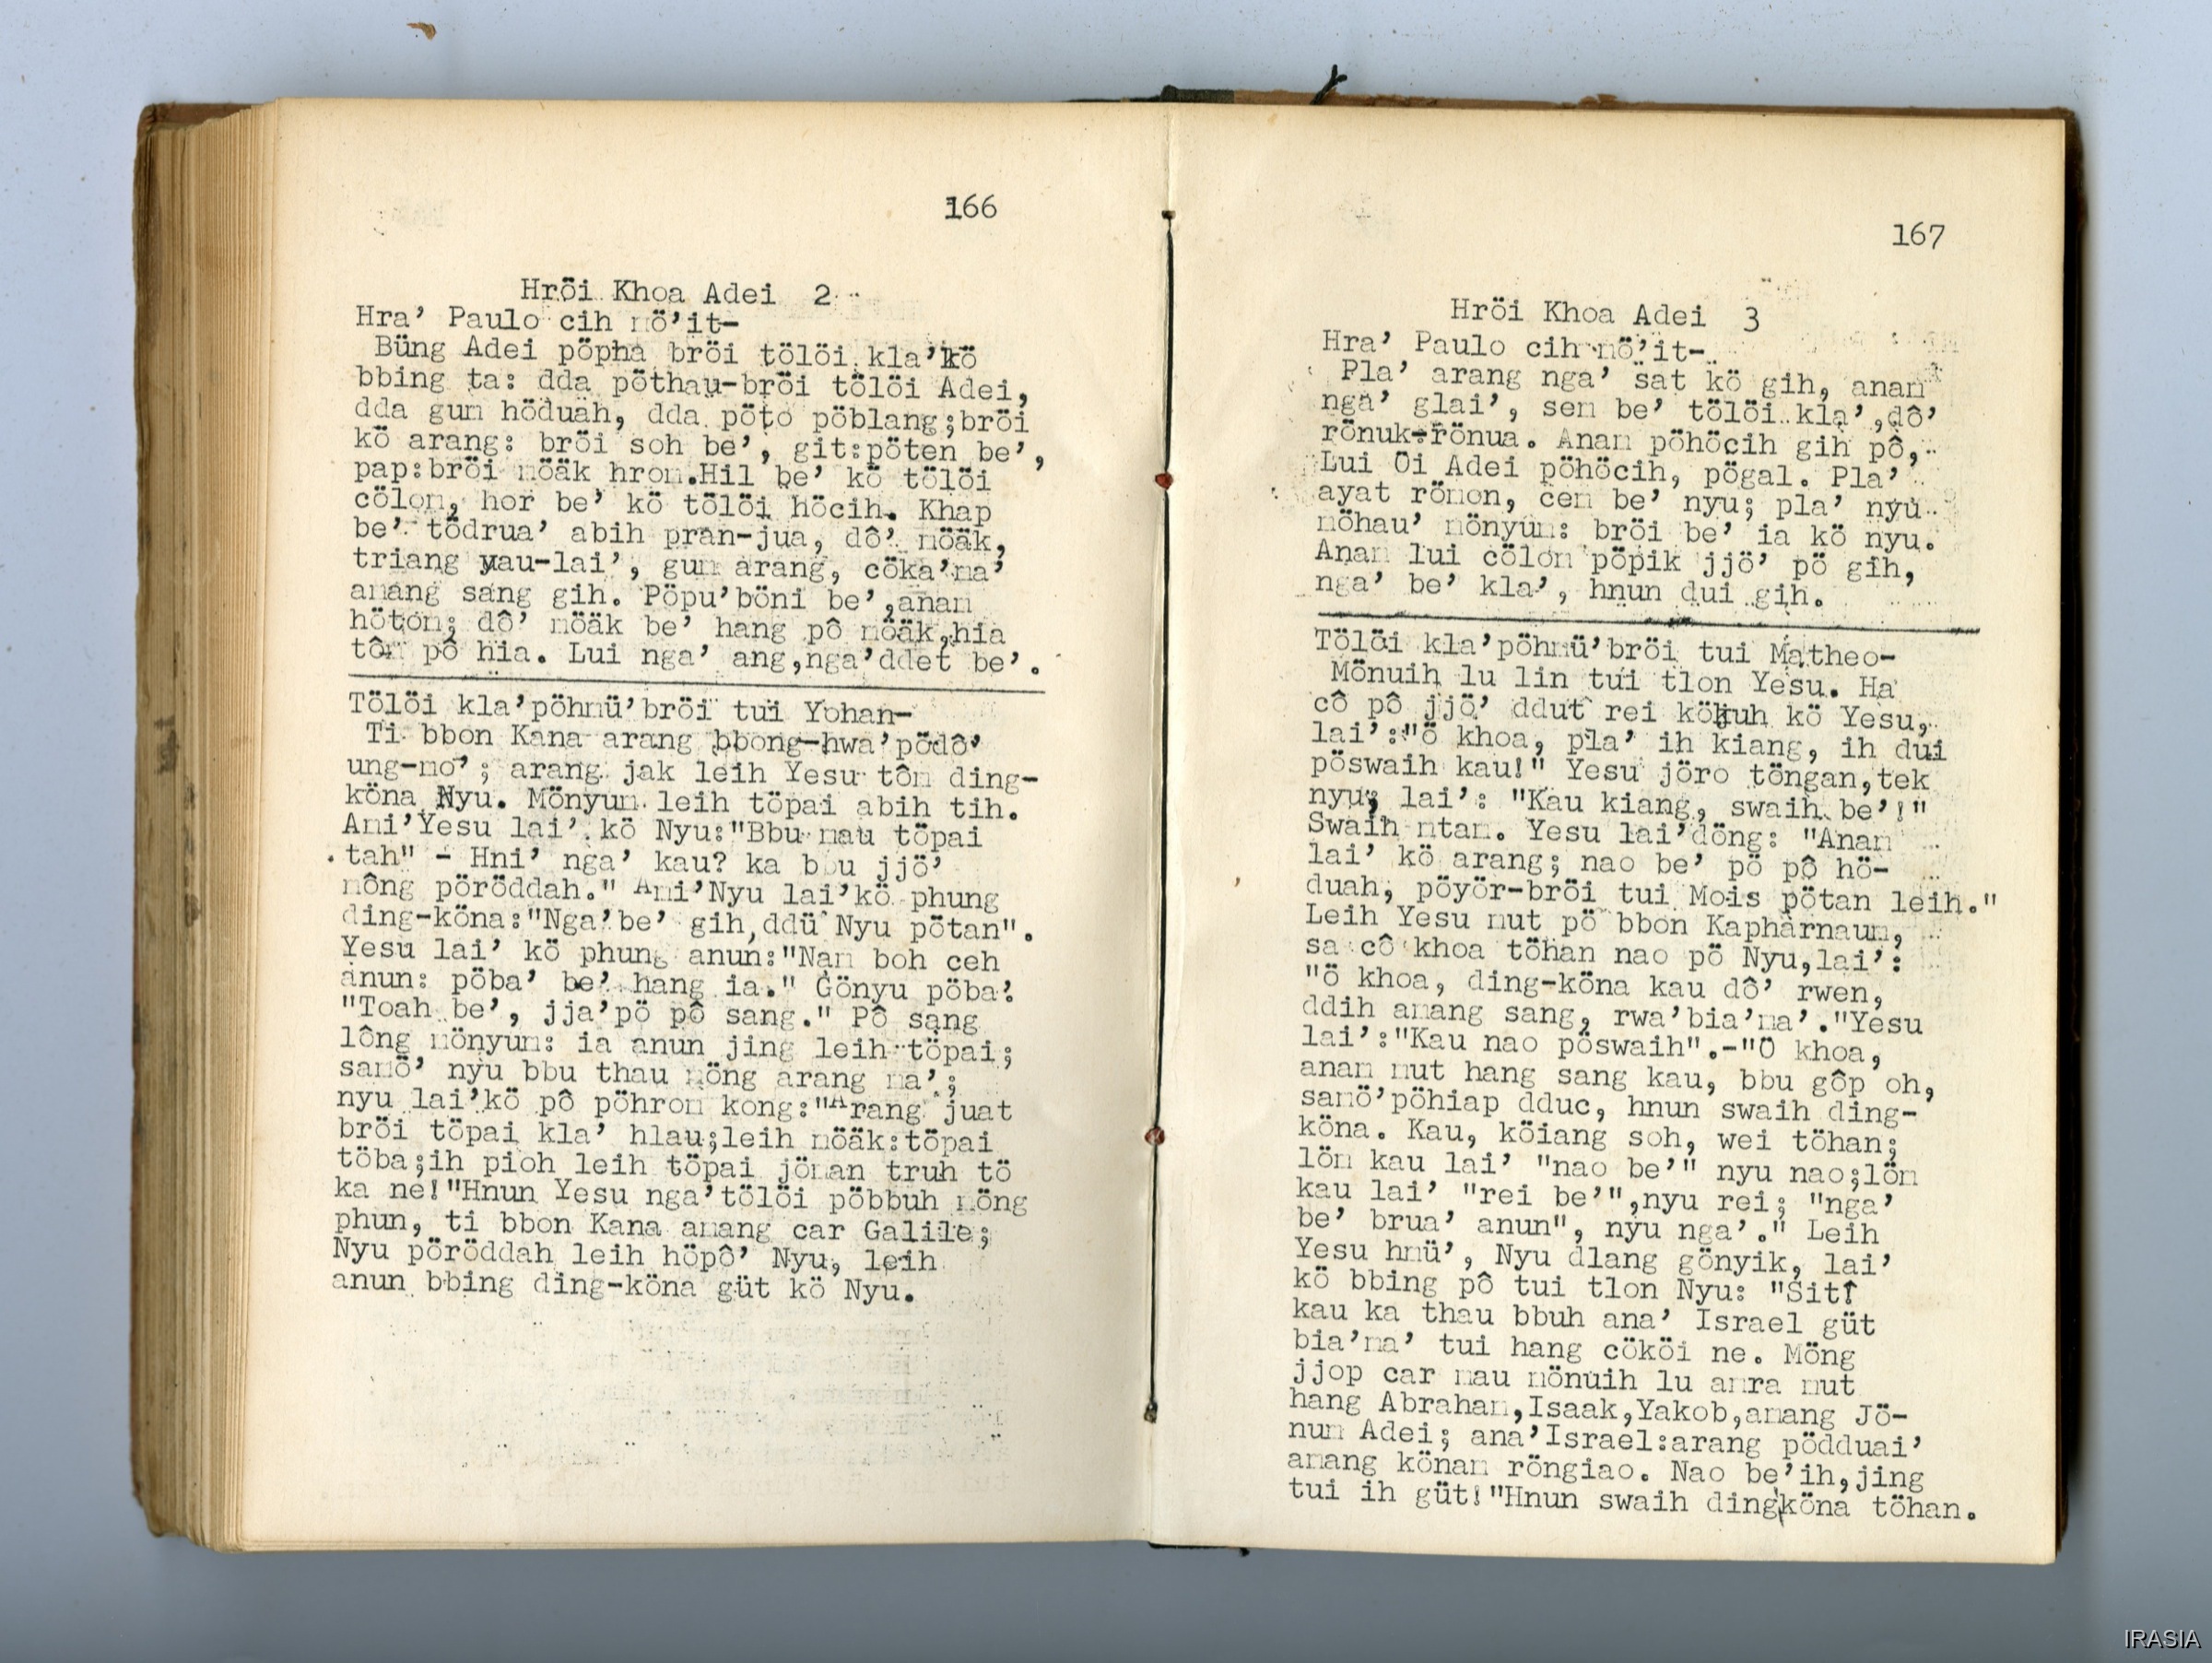 166
Hröi Khoa Adei 2
Hra’ Paulo cih mö’it-
Büng Adei pöpha bröi tölöi kla’kö
bbing ta: dda pöthau-bröi tölöi Adei,
dda gum höduah, dda pöto pöblang;bröi
kö arang: bröi soh be’, git:pöten be’,
pap:bröi möäk hrom.Hil be’ kö tölöi
cölom, hor be’ kö tölöi höcih. Khap
be’ tödrua’ abih pran-jua, dô’ möäk,
triang yau-lai’, gum arang, cöka’ma’
amang sang gih. Pöpu’böni be’,anam
hötom; dô’ möäk be’ hang pô möäk,hia
tôm pô hia. Lui nga’ ang,nga’ddet be’.
Tölöi kla’pöhmü’bröi tui Yohan-
Ti bbon Kana arang bbong-hwa’pödô’
ung-mo’; arang jak leih Yesu tôm ding-
köna Nyu. Mönyum leih töpai abih tih.
Ami’Yesu lai’ kö Nyu:"Bbu mau töpai
tah" - Hni’ nga’ kau? ka bbu jjö’
mông pöröddah." Ami’Nyu lai’kö phung
ding-köna:"Nga’be’ gih,ddü Nyu pötan".
Yesu lai’ kö phung anun:"Nam boh ceh
anun: pöba’ be’ hang ia." Gönyu pöba’:
"Toah be’, jja’pö pô sang." Pô sang
lông mönyum: ia anun jing leih töpai;
samö’ nyu bbu thau möng arang ma’;
nyu lai’kö pô pöhrom kong:"Arang juat
bröi töpai kla’ hlau;leih möäk:töpai
töba;ih pioh leih töpai jöman truh tö
ka ne!"Hnun Yesu nga’tölöi pöbbuh möng
phun, ti bbon Kana amang car Galile;
Nyu pöröddah leih höpô’ Nyu, leih
anun bbing ding-köna güt kö Nyu.
167
Hröi Khoa Adei 3
Hra’ Paulo cih mö’it-
Pla’ arang nga’ sat kö gih, anam
nga’ glai’, sem be’ tölöi kla’,dô’
rönuk-rönua. Anam pöhöcih gih pô,
Lui Öi Adei pöhöcih, pögal. Pla’
ayat römon, cem be’ nyu; pla’ nyu
möhau’ mönyum: bröi be’ ia kö nyu.
Anam lui cölom pöpik jjö’ pö gih,
nga’ be’ kla’, hnun dui gih.
Tölöi kla’pöhmü’bröi tui Matheo-
Mönuih lu lin tui tlon Yesu. Ha
cô pô jjö’ ddut rei kökuh kö Yesu,
lai’:"ö khoa, pla’ ih kiang, ih dui
pöswaih kau!" Yesu jöro töngan,tek
nyu; lai’: "Kau kiang, swaih be’!"
Swaih mtam. Yesu lai’döng: "Anam
lai’ kö arang; nao be’ pö pô hö-
duah, pöyör-bröi tui Mois pötan leih."
Leih Yesu mut pö bbon Kapharnaum,
sa cô khoa töhan nao pö Nyu,lai’:
"ö khoa, ding-köna kau dô’ rwen,
ddih amang sang, rwa’bia’ma’."Yesu
lai’:"Kau nao pöswaih".-"Ö khoa,
anam mut hang sang kau, bbu gôp oh,
samö’pöhiap dduc, hnun swaih ding-
köna. Kau, köiang soh, wei töhan;
löm kau lai’ "nao be’" nyu nao;löm
kau lai’ "rei be’",nyu rei; "nga’
be’ brua’ anun", nyu nga’." Leih
Yesu hmü’, Nyu dlang gönyik, lai’
kö bbing pô tui tlon Nyu: "Sit!
kau ka thau bbuh ana’ Israel güt
bia’ma’ tui hang cököi ne. Möng
jjop car mau mönuih lu amra mut
hang Abraham,Isaak,Yakob,amang Jö-
num Adei; ana’Israel:arang pödduai’
amang könam röngiao. Nao be’ih,jing
tui ih güt!"Hnun swaih dingköna töhan.
IRASIA